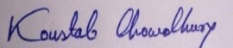 Koustab Chowdhury